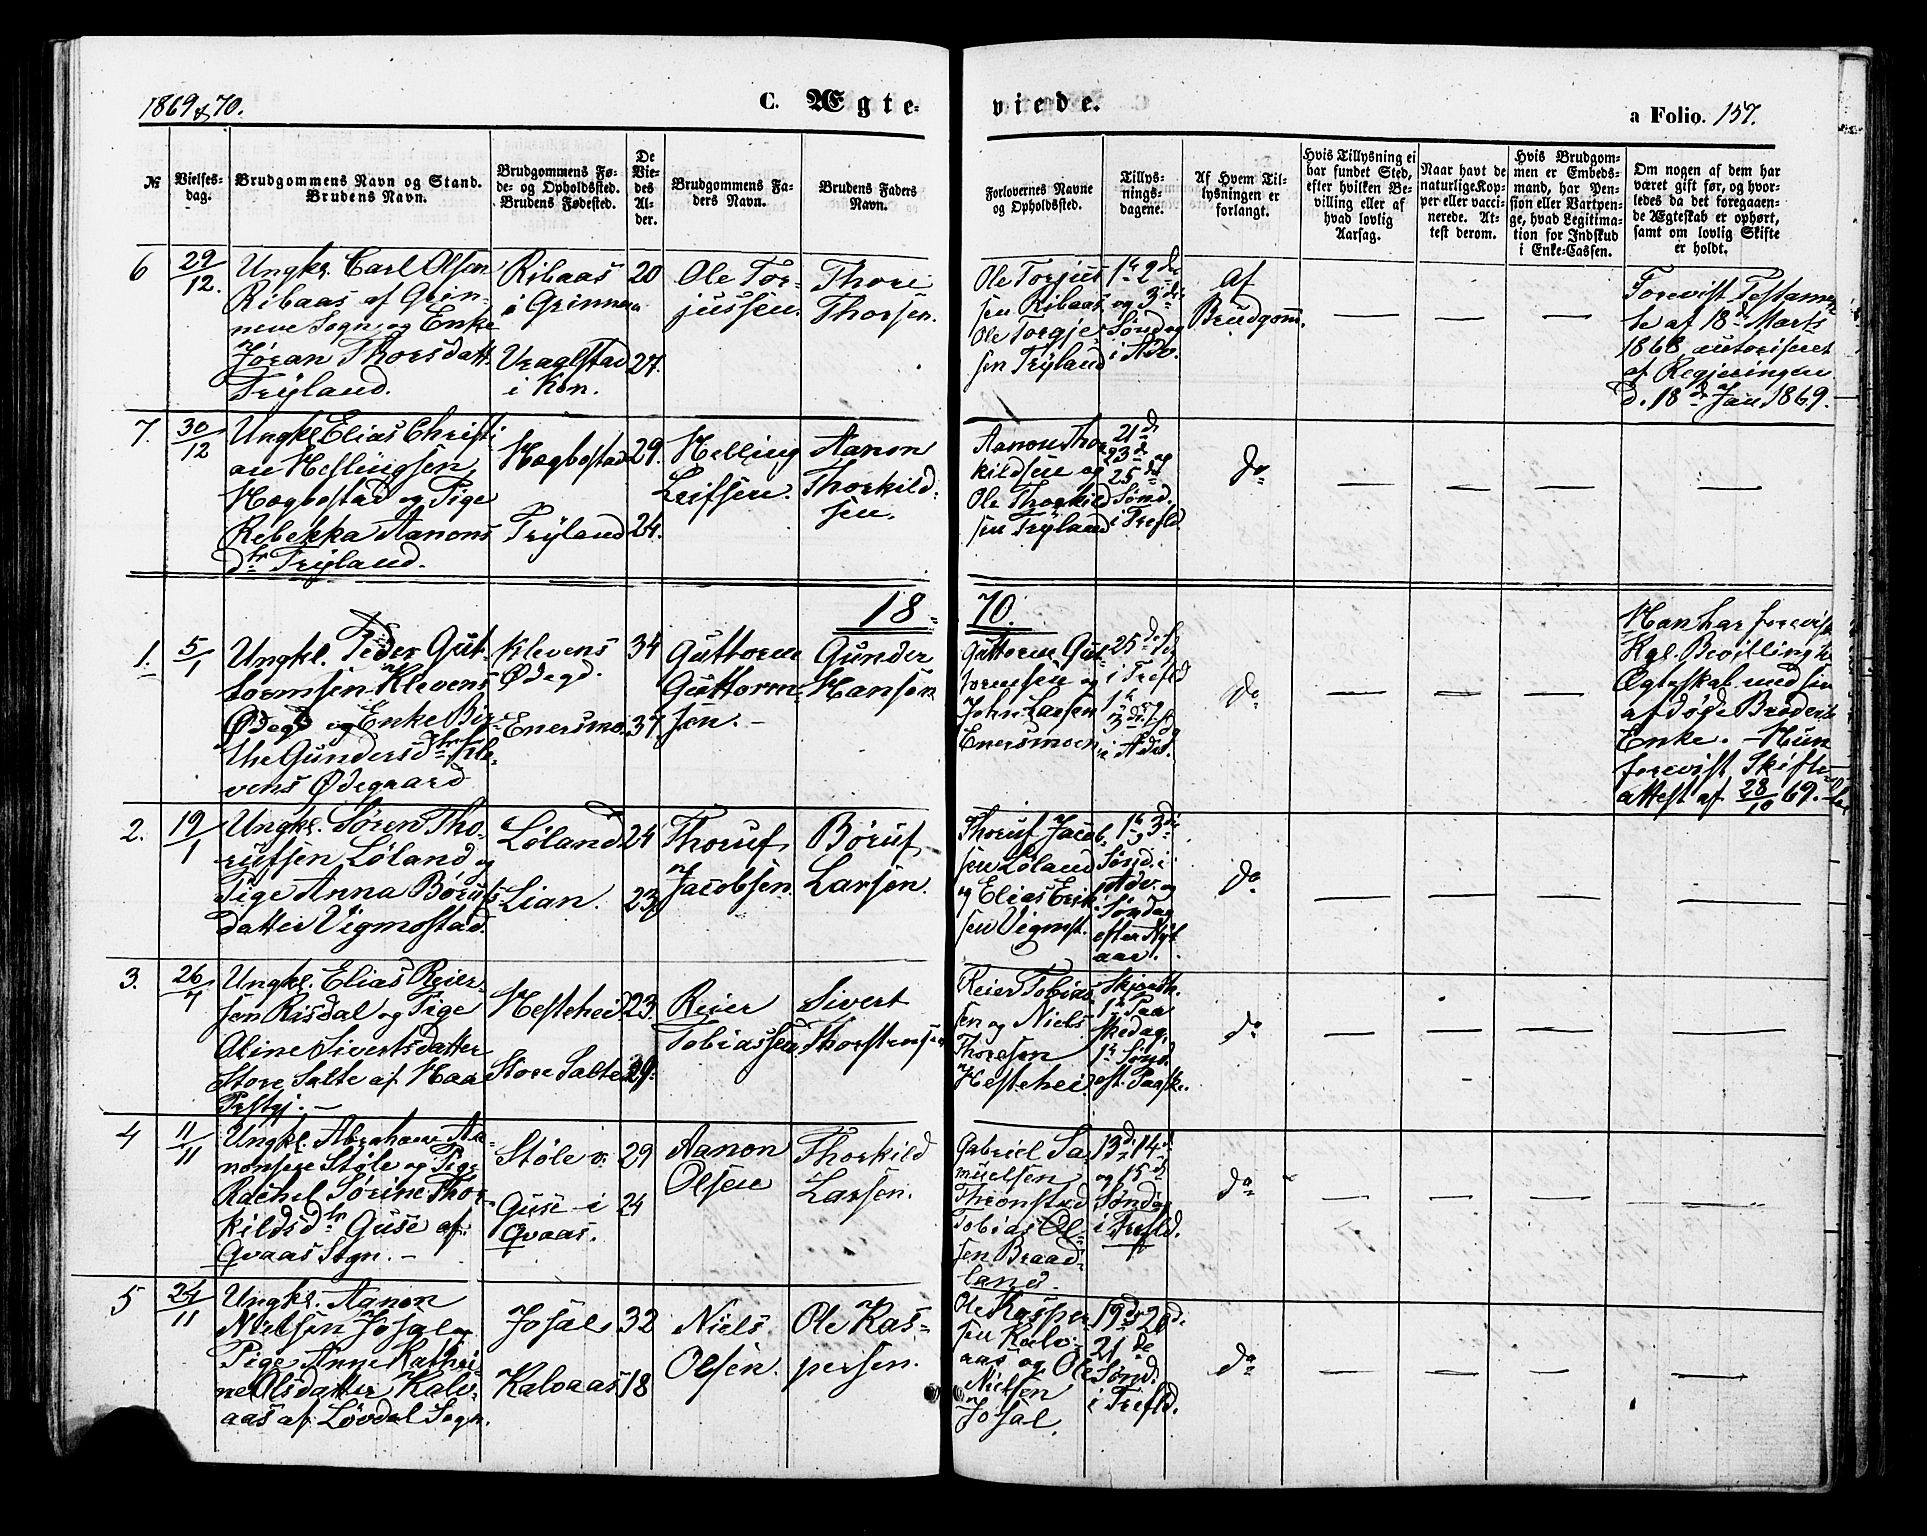 1869 & 70.
C. Ægte-
viede.
a Folio. 157.
№
Vielses-
dag.
Brudgommens Navn og Stand.
Brudens Navn.
Brudgommens Fø-
de- og Opholdssted.
Brudens Fødested.
De
Vie-
des
Al-
der.
Brudgommens Fa-
ders Navn.
Brudens Faders
Navn.
Forlovernes Navne
og Opholdssted.
Tillys-
nings-
dagene.
Af Hvem Til-
lysningen er
forlangt.
Hvis Tillysning ei
har fundet Sted,
efter hvilken Be-
villing eller af
hvad lovlig
Aarsag.
Naar havt de
naturlige Kop-
per eller vacci-
nerede. At-
test derom.
Hvis Brudgom-
men er Embeds-
mand, har Pen-
sion eller Vartpen-
ge, hvad Legitima-
tion for Indskud
i Enke-Cassen.
Om nogen af dem har
været gift før, og hvor-
ledes da det foregaaen-
de Ægteskab er ophørt,
samt om lovlig Skifte
er holdt.
6
29/12.
Ungkr. Carl Olsen
Ribaas af Grin-
mene Sogn og Enke
Jøran Thorsdatt.
Trÿland.
Ribaas
i Grinmen
i Kon.
20
27.
Ole Tor-
jussen.
Thore
Thorsen.
Ole Torjus
sen Ribaas
Ole Torgjer-
sen Trÿland
1ste 2den
og 3die
Søndag
i Adv.
Af
Brudgom.
Forevist Testamen
te af 18de Marts
1868 autoriseret
af Regjeringen
d. 18de Jan 1869.
7.
30/12
Ungkl Elias Christi
an Hellingsen
Hægbostad og Pige
Rebekka Aanons
dtr Trÿland.
Hægbostad
Trÿland
29.
24.
Helling
Leifsen.
Aanon
Thorkild-
sen.
Aanon Thor
kildsen og
Ole Thorkild
sen Trÿland
21de
23de og
25de
Sønd.
i Trefld
do
18-
70.
1.
5/1
Ungkl. Peder Gut-
tormsen Klevens
Ødegd og Enke Bir-
the Gundersdtr Kle-
vens Ødegaard
Klevens
Ødegd.
Enersmo.
34
37.
Guttorm
Guttorm-
sen. -
Gunder
Hansen
Guttorm Gut-
tormsen og
John Larsen
Enersmoen
25de
i Trefld
1ste og
3die
i Advt.
do
Han har forevist
Kgl. Bevilling til
Ægteskab med sin
afdøde Broders
Enke. - Hun
forevist Skifte-
attest af 28/10 69.
2.
19/1
Ungkl. Søren Tho-
rufsen Løland og
Pige Anna Børufs-
datter Vigmostad.
Løland
Lian.
24
23
Thoruf
Jacobsen.
Børuf
Larsen.
Thoruf Jacob-
sen Løland
og Elias Erik-
sen Vigmst.
1ste og 3die
Sønd. i
Adv. og
Søndag
efter Nyt
aar.
do
3.
26/4
Ungkl. Elias Reier-
sen Risdal og Pige
Oline Sivertsdatter
Store Salte af Haa
Prstgj. -
Hestehei
Store Salte
23.
29.
Reier
Tobiassen
Sivert
Thorstensen
Reier Tobias
sen og Niels
Thoresen
Hestehei
Skjærth.
1ste Paa
skedag,
1ste Sønd.
eft. Paaske.
do
4
11/11
Ungkl. Abraham Aa-
nonsen Støle og Pige
Rachel Sørine Thor-
kildsdtr Guse af
Qvaas Sogn. -
Støle
Guse i
Qvaas.
29
24
Aanon
Olsen
Thorkild
Larsen.
Gabriel Sa
muelsen
Thronstad
Tobias Ol-
sen Braad-
land.
13de 14de
og 15de
Søndag
i Trefld.
do
5
24/11
Ungkl. Aanon
Nielsen Josal og
Pige Anne Kathri-
ne Olsdatter Kalv-
aas af Løvdal Sogn.
Josal
Kalvaas
32
18
Niels
Olsen.
Ole Kas-
persen.
Ole Kasper-
sen Kalv-
aas og Ole
Nielsen
Josal.
19de 20de
21de
Sønd.
i Trefld.
do